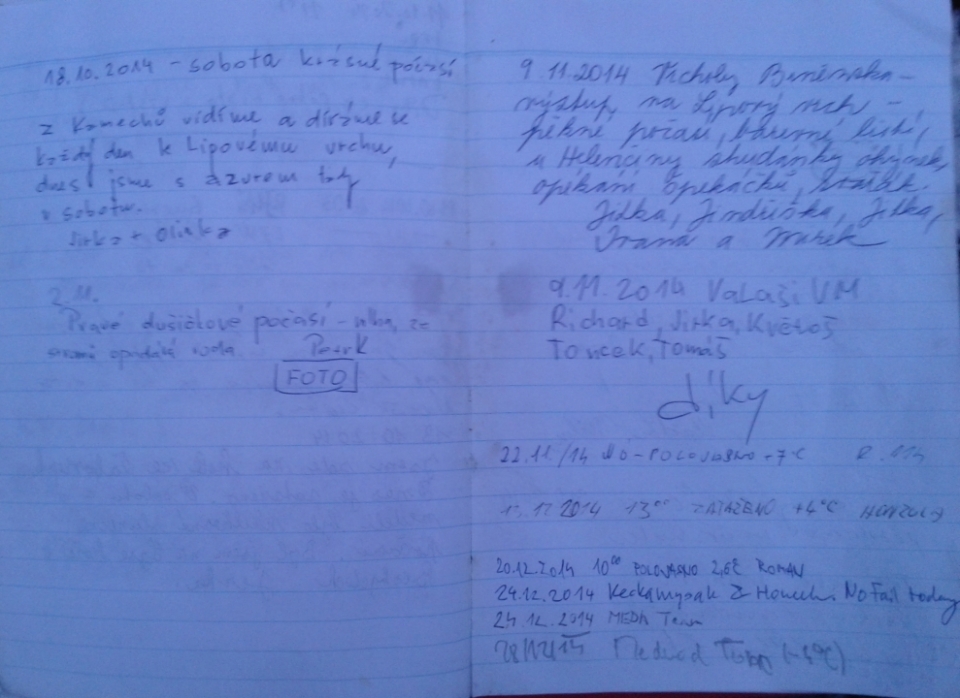 18.10.2014 - sobota krásné počasí
z Kamechů vidíme a díváme se
každý den k Lipovému vrchu,
dnes jsme s azurem tady
v sobotu.
Jirka + Olinka
2.11.
Pravé dušičkové počasí - mlha, ze
stromů opadává voda. PetrK
FOTO
9.11.2014
výstup na Lipový vrch -
pěkné počasí, barevné listí,
u Helenčiny studánky ohýnek,
opékání špekáčků,
Jitka, Jindřiška, Jitka,
Ivana a Marek
9.11.2014 Valaši VM
Richard, Jirka, Květoš
Toncek, Tomáš
díky
22.11/14 POLOJASNO +7°C
2014 13⁰⁰ ZATAŽENO +4°C
20.12.2014 10⁰⁰ POLOJASNO ROMAN
24.12.2014 No Fail today
24.12.2014 Team
28/12/14